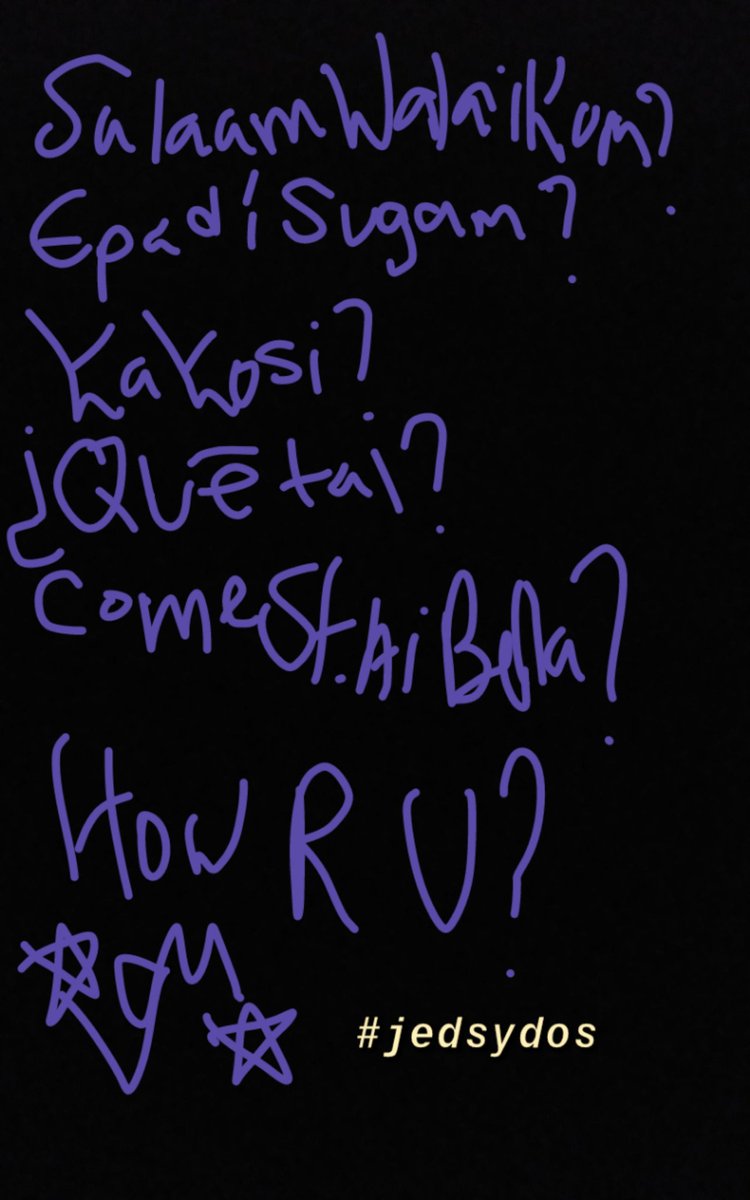 Salaam Walaikum?
Epadi Sugam?
Kakosi?
¿Quē tal?
Come St.Ai Bella?
How R U?
#jedsydos